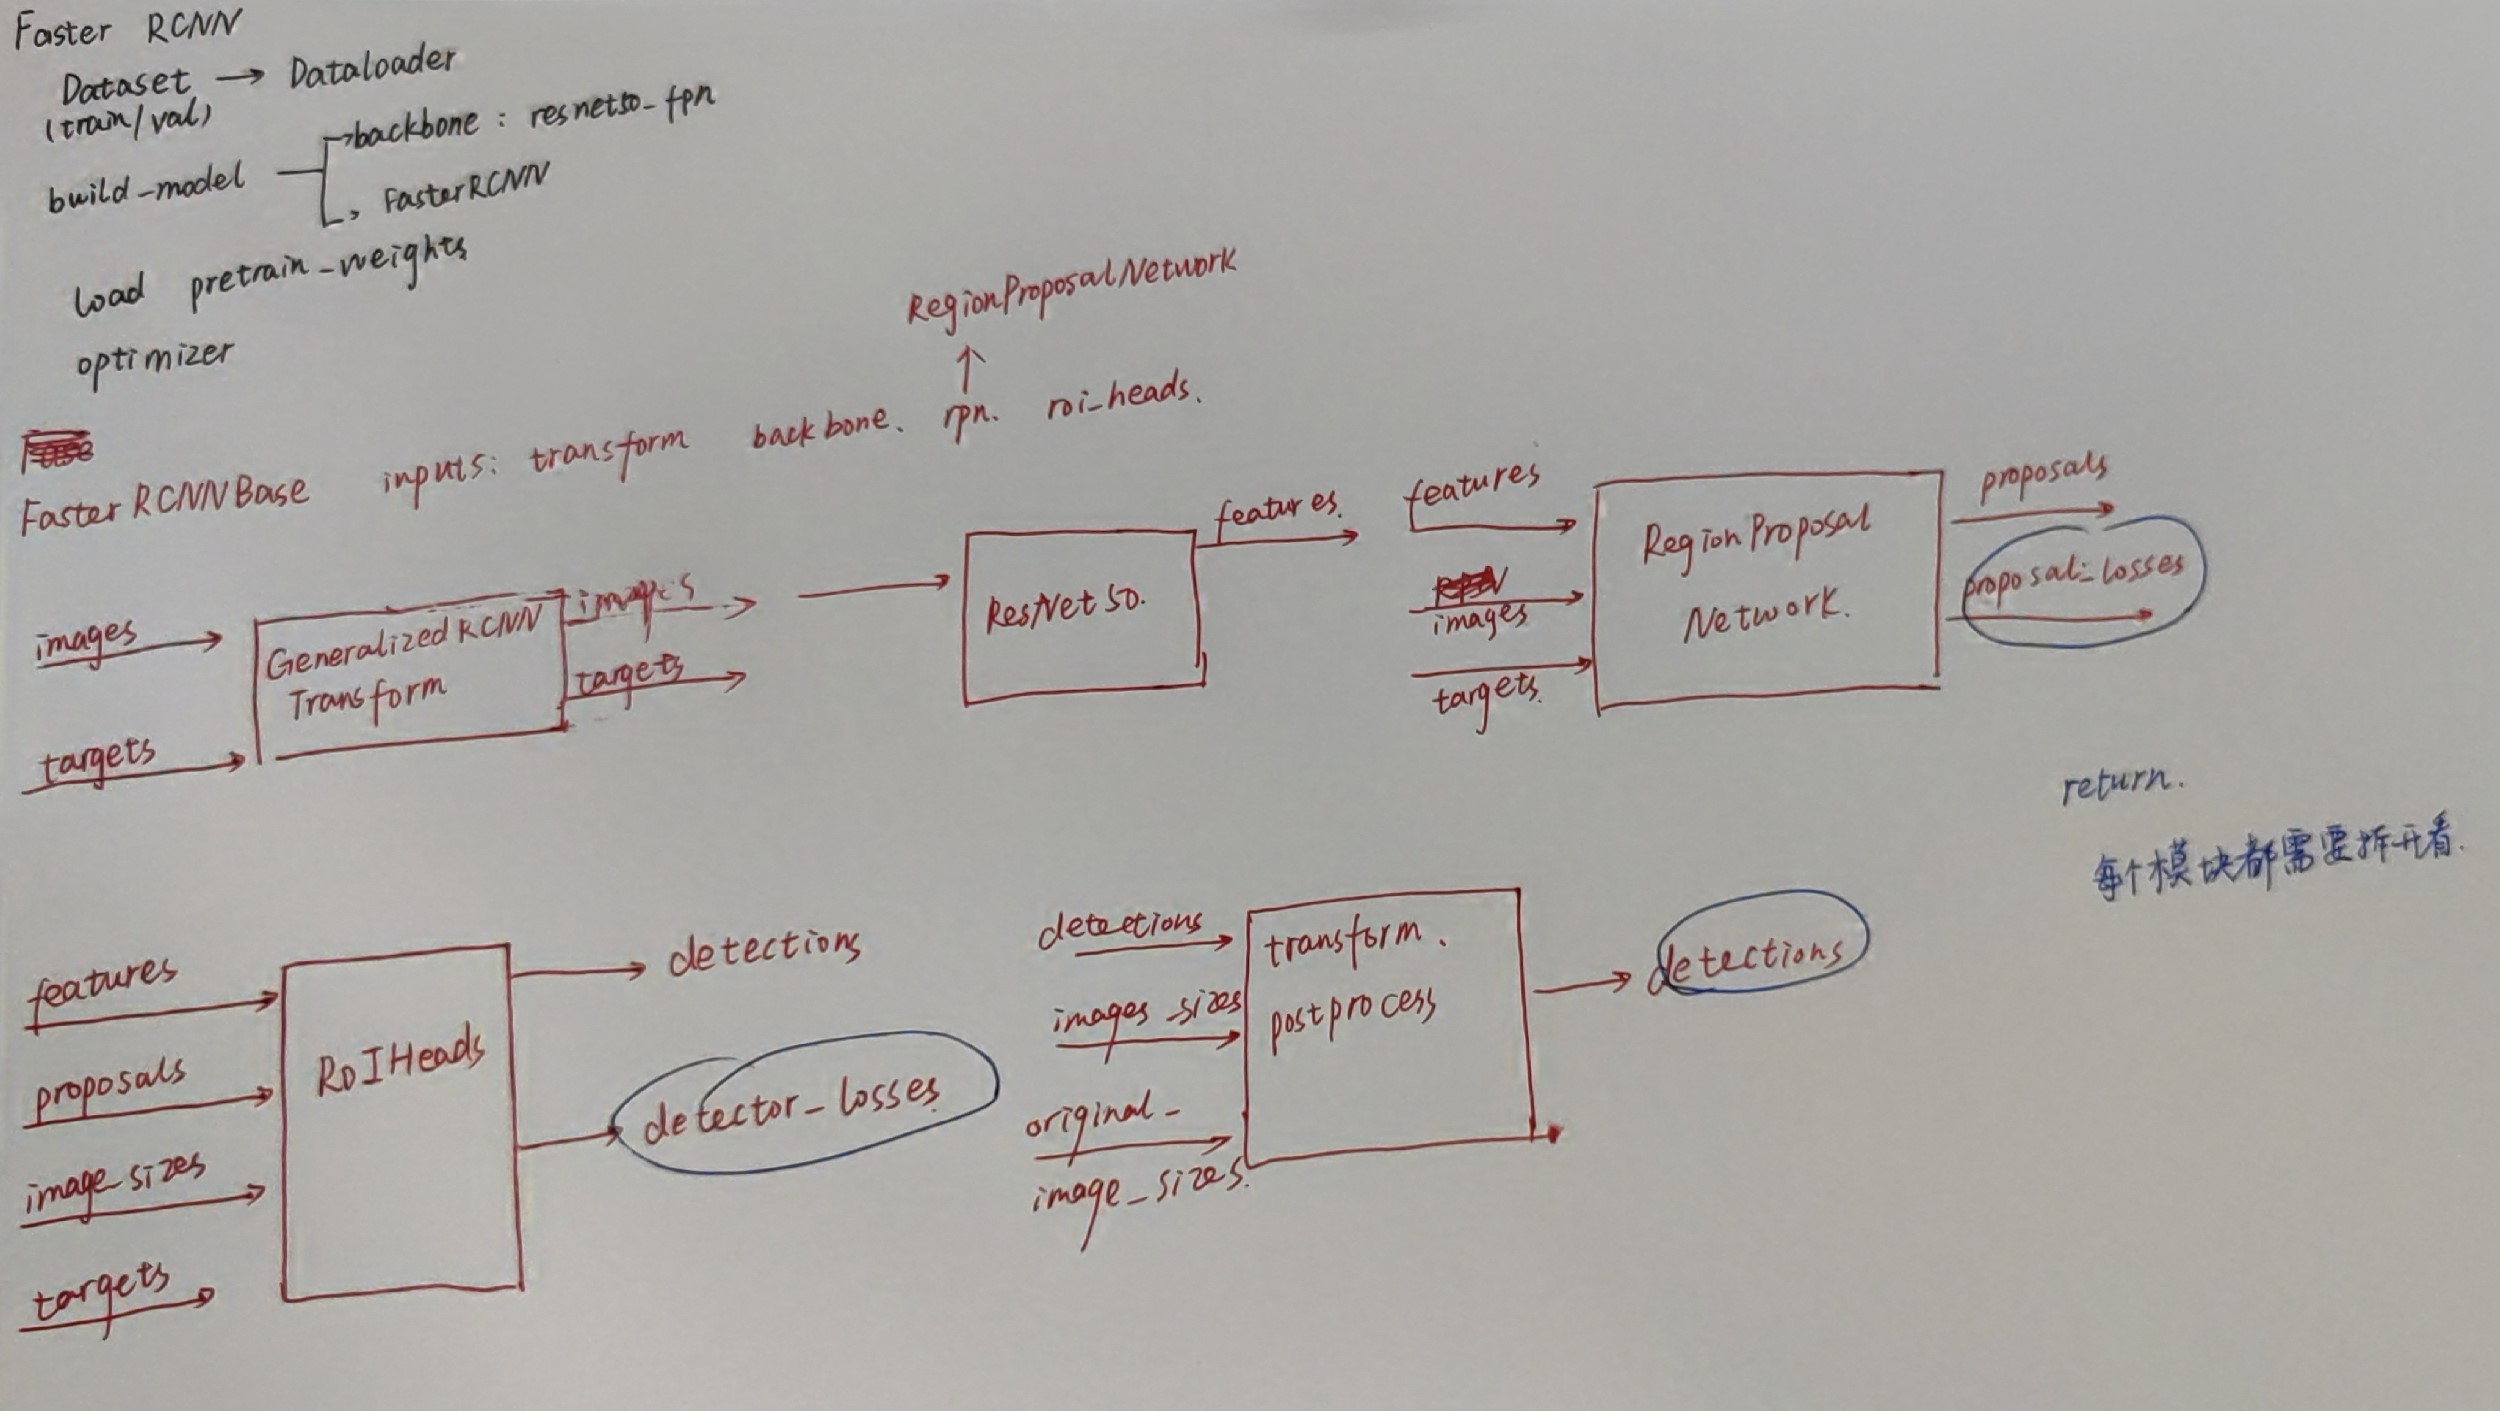 Faster RCNN
Dataset → Dataloader
(train/val)
build_model
→backbone : resnet50_fpn
→ FasterRCNN
load pretrain_weights
optimizer
RegionProposalNetwork
↑
FasterRCNNBase inputs: transform backbone. rpn. roi_heads.
images
targets
GeneralizedRCNN
Transform
images
targets
ResNet50.
features.
features
images
targets.
RegionProposal
Network.
proposals
proposal_losses
return.
每个模块都需要拆开看.
features
proposals
image_sizes
targets
RoIHeads
detections
detector_losses
detections
images_sizes
original_
image_sizes.
transform.
postprocess
detections